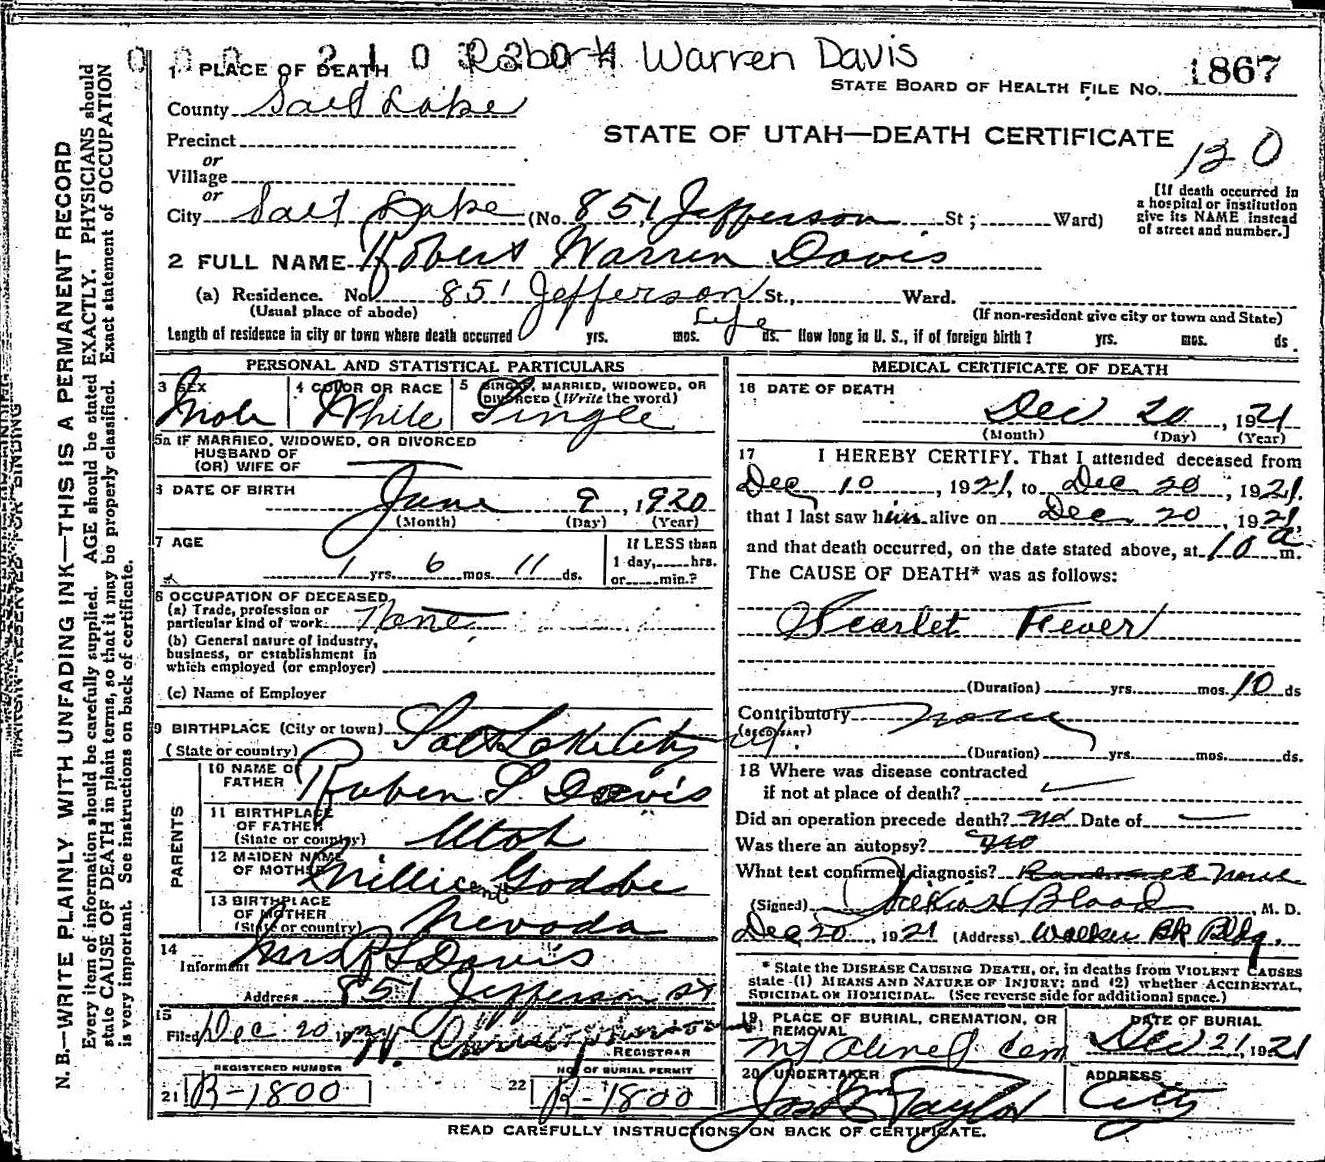 000 210 Robert Warren Davis
1 PLACE OF DEATH
STATE BOARD OF HEALTH FILE NO. 1867
County Salt Lake
STATE OF UTAH—DEATH CERTIFICATE
130
Precinct
or
Village
or
[If death occurred in a hospital or institution give its NAME instead of street and number.]
City Salt Lake (No. 851 Jefferson St; Ward)
2 FULL NAME Robert Warren Davis
(a) Residence. No 851 Jefferson St., Ward.
(Usual place of abode) (If non-resident give city or town and State)
Length of residence in city or town where death occurred yrs. mos. Life ds. How long in U. S., if of foreign birth? yrs. mos. ds.
PERSONAL AND STATISTICAL PARTICULARS
3 SEX Male
4 COLOR OR RACE White
5 SINGLE, MARRIED, WIDOWED, OR DIVORCED (Write the word) Single
5a IF MARRIED, WIDOWED, OR DIVORCED
HUSBAND OF
(OR) WIFE OF
6 DATE OF BIRTH June 9, 1920
(Month) (Day) (Year)
7 AGE 1 yrs. 6 mos. 11 ds.
If LESS than 1 day, hrs. or min.?
8 OCCUPATION OF DECEASED
(a) Trade, profession or particular kind of work None
(b) General nature of industry, business, or establishment in which employed (or employer)
(c) Name of Employer
9 BIRTHPLACE (City or town) Salt Lake City
(State or country) Ut.
PARENTS
10 NAME OF FATHER Ruben S. Davis
11 BIRTHPLACE OF FATHER (State or country) Utah
12 MAIDEN NAME OF MOTHER Millicent Godbe
13 BIRTHPLACE OF MOTHER (State or country) Nevada
14 Informant Mrs R S Davis
Address 851 Jefferson St
15 Filed Dec 20, 19
REGISTRAR
REGISTERED NUMBER
21 R-1800
NO. OF BURIAL PERMIT
22 R-1800
MEDICAL CERTIFICATE OF DEATH
16 DATE OF DEATH
Dec 20, 1921
(Month) (Day) (Year)
17 I HEREBY CERTIFY, That I attended deceased from
Dec 10, 1921, to Dec 20, 1921,
that I last saw him alive on Dec 20, 1921,
and that death occurred, on the date stated above, at 10 a m.
The CAUSE OF DEATH* was as follows:
Scarlet Fever
(Duration) yrs. mos. 10 ds
Contributory none
(SECONDARY)
(Duration) yrs. mos. ds.
18 Where was disease contracted
if not at place of death?
Did an operation precede death? no Date of
Was there an autopsy? no
What test confirmed diagnosis? none
(Signed) Blood, M. D.
Dec 20, 1921 (Address) Walker Bk Bldg.
* State the DISEASE CAUSING DEATH, or, in deaths from VIOLENT CAUSES
state (1) MEANS AND NATURE OF INJURY; and (2) whether ACCIDENTAL,
SUICIDAL OR HOMICIDAL. (See reverse side for additional space.)
19 PLACE OF BURIAL, CREMATION, OR REMOVAL Mt Olivet Cem
DATE OF BURIAL Dec 21, 1921
20 UNDERTAKER Jos E Taylor
ADDRESS City
READ CAREFULLY INSTRUCTIONS ON BACK OF CERTIFICATE.
MARGIN RESERVED FOR BINDING
N. B.—WRITE PLAINLY WITH UNFADING INK—THIS IS A PERMANENT RECORD
Every item of information should be carefully supplied. AGE should be stated EXACTLY. PHYSICIANS should
state CAUSE OF DEATH in plain terms, so that it may be properly classified. Exact statement of OCCUPATION
is very important. See instructions on back of certificate.